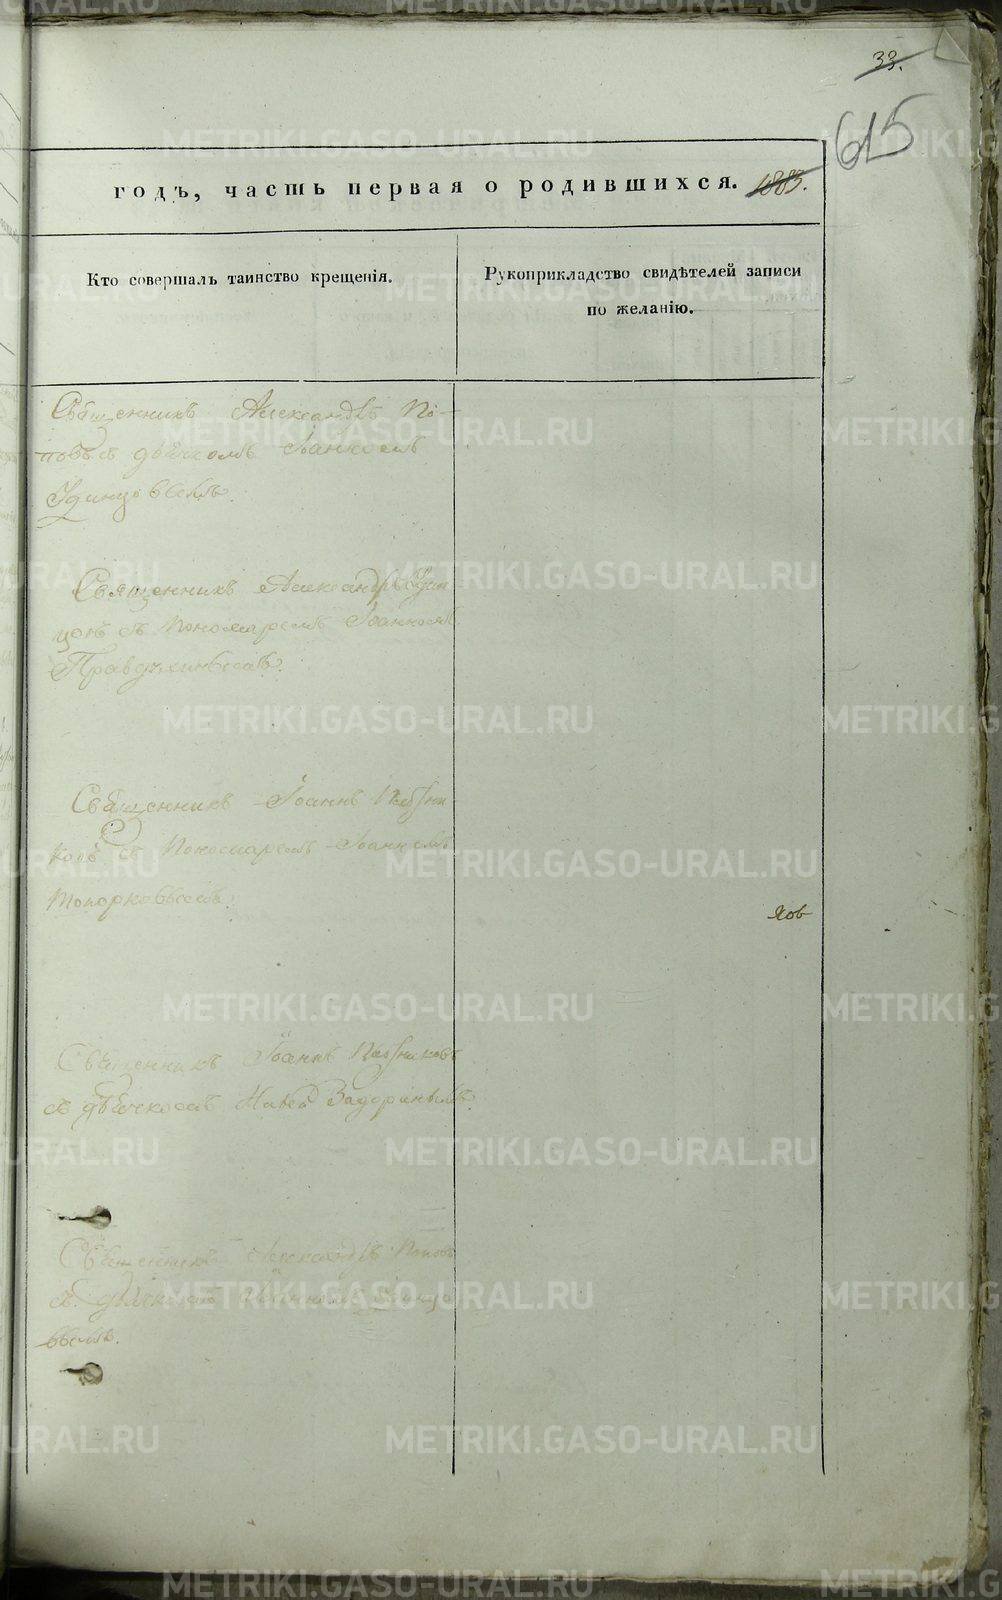 33.
615
годъ, часть первая о родившихся. 1883.
Кто совершалъ таинство крещенія.
Рукоприкладство свидѣтелей записи
по желанію.
Священникъ Александръ По-
повъ съ дьячкомъ Іоанномъ
Удинцовымъ.
Священникъ Александръ Удин
цовъ съ Пономаремъ Іоанномъ
Правдухинымъ.
Священникъ Іоаннъ
ковъ съ Пономаремъ Іоанномъ
Топорковымъ.
Яов
Священникъ Іоаннъ
съ дьячкомъ Задоринымъ
Священникъ Александръ Поповъ
съ дьячкомъ Іоанномъ Удинцо
вымъ.
METRIKI.GASO-URAL.RU